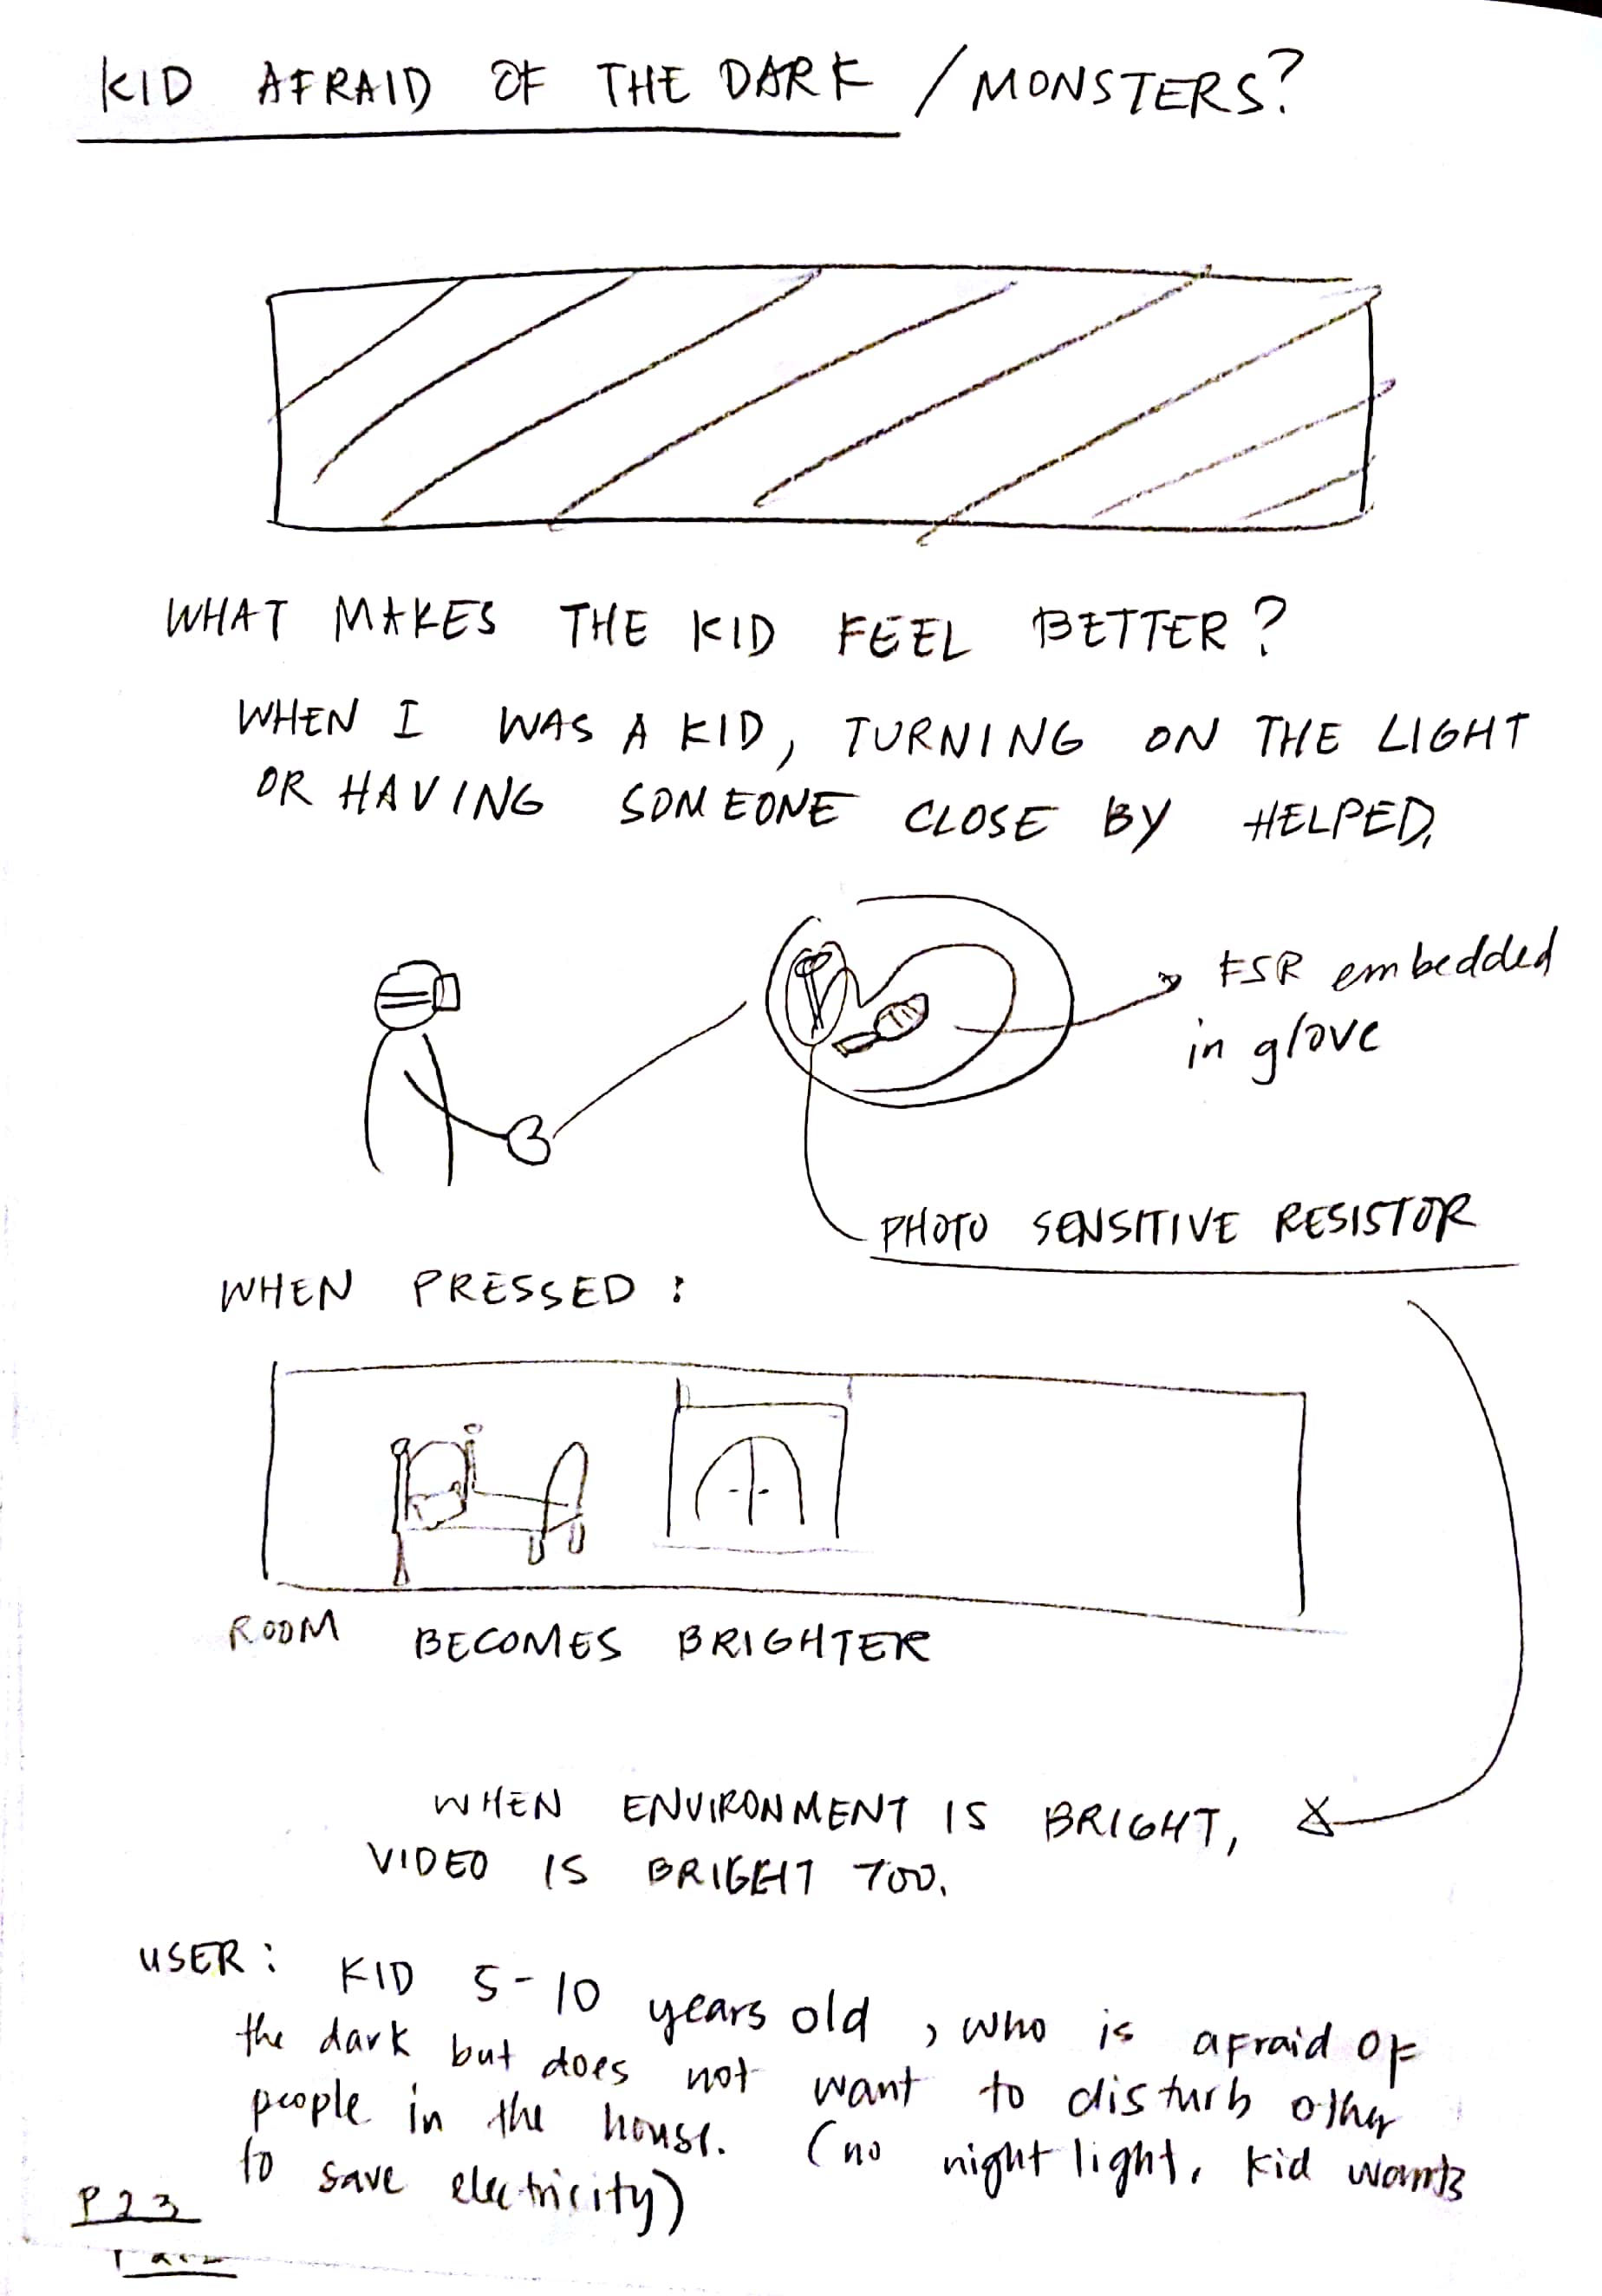 KID AFRAID OF THE DARK / MONSTERS?
WHAT MAKES THE KID FEEL BETTER?
WHEN I WAS A KID, TURNING ON THE LIGHT
OR HAVING SOMEONE CLOSE BY HELPED.
FSR embedded
in glove
PHOTO SENSITIVE RESISTOR
WHEN PRESSED:
ROOM BECOMES BRIGHTER
WHEN ENVIRONMENT IS BRIGHT,
VIDEO IS BRIGHT TOO.
USER: KID 5-10 years old, who is afraid of
the dark but does not want to disturb other
people in the house. (no night light, kid wants
to save electricity)
P23